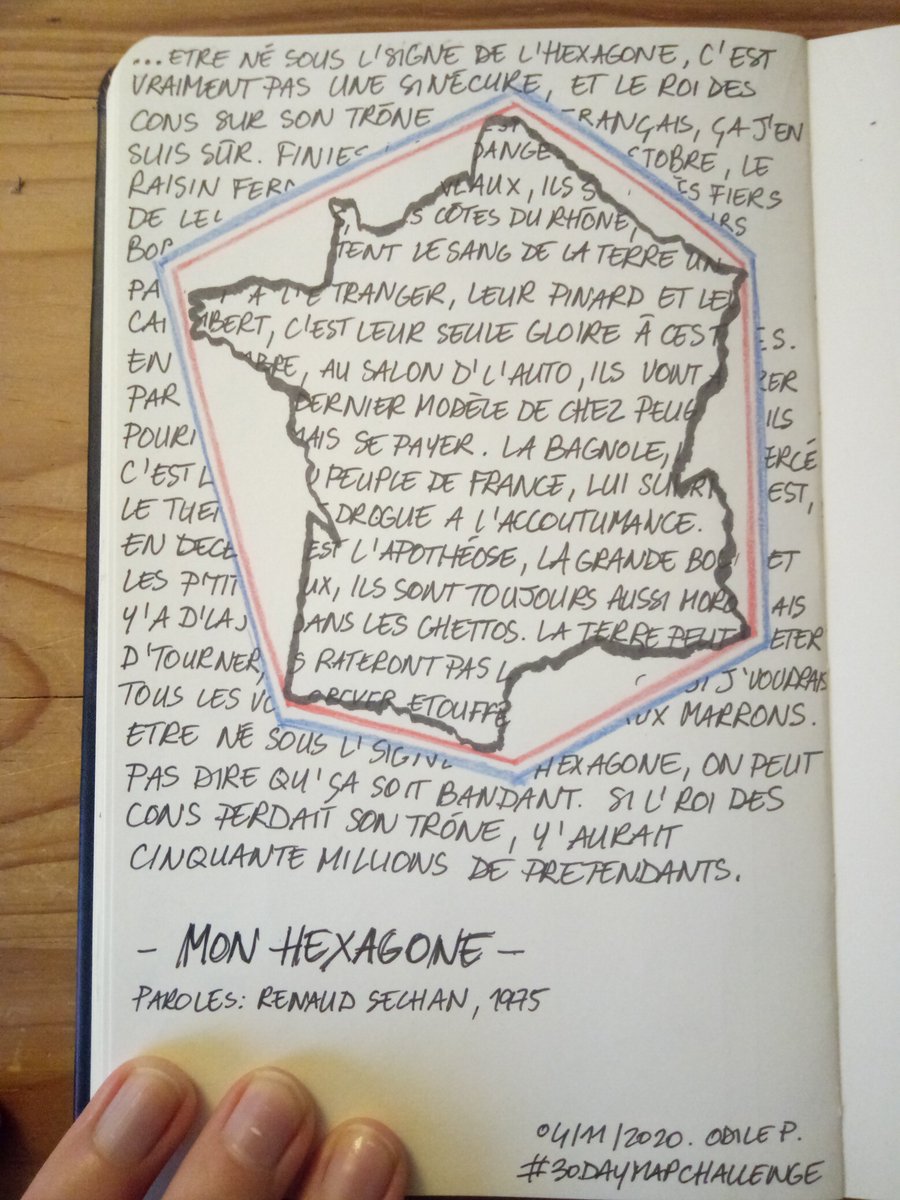 ...ETRE NÉ SOUS L'SIGNE DE L'HEXAGONE, C'EST
VRAIMENT PAS UNE SINÉCURE, ET LE ROI DES
CONS SUR SON TRÔNE RANÇAIS, ÇA J'EN
SUIS SÛR. FINIES DANGE TOBRE, LE
RAISIN FER VEAUX, ILS S ÈS FIERS
DE LEU S CÔTES DU RHÔNE, RS
BO TENT LE SANG DE LA TERRE UN
PA A L'ETRANGER, LEUR PINARD ET LEU
CA MBERT, C'EST LEUR SEULE GLOIRE À CES T ES.
EN BRE, AU SALON D'L'AUTO, ILS VONT RER
PAR DERNIER MODÈLE DE CHEZ PEUG ILS
POURR MAIS SE PAYER. LA BAGNOLE, ERCÉ
C'EST L PEUPLE DE FRANCE, LUI SU EST,
LE TIER DROGUE A L'ACCOUTUMANCE.
EN DECE EST L'APOTHÉOSE, LA GRANDE BOU ET
LES P'TIT UX, ILS SONT TOUJOURS AUSSI MORO AIS
Y'A D'LA J DANS LES GHETTOS. LA TERRE PEUT ETER
D'TOURNER, S RATERONT PAS L SI J'VOUDRAIS
TOUS LES VO CREVER ETOUFFÉ AUX MARRONS.
ETRE NÉ SOUS L'SIGNE HEXAGONE, ON PEUT
PAS DIRE QU'ÇA SOIT BANDANT. SI L'ROI DES
CONS PERDAIT SON TRÔNE, Y'AURAIT
CINQUANTE MILLIONS DE PRETENDANTS.
- MON HEXAGONE -
PAROLES: RENAUD SECHAN, 1975
04/11/2020. ODILE P.
#30DAYMAPCHALLENGE